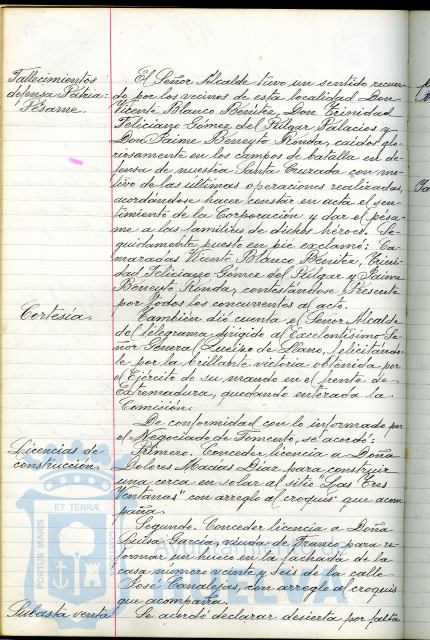 Fallecimientos
defensa Patria:
Pésame.
El Señor Alcalde tuvo un sentido recuer-
do por los vecinos de esta localidad Don
Vicente Blanco Benítez, Don Trinidad
Feliciano Gómez del Pulgar Palacios y
Don Jaime Beneyto Ronda, caidos glo-
riosamente en los campos de batalla en de-
fensa de nuestra Santa Cruzada con mo-
tivo de las últimas operaciones realizadas,
acordándose hacer constar en acta el sen-
timiento de la Corporación y dar el pésa-
me a las familias de dichos héroes. Se-
guidamente puesto en pié exclamó: Ca-
maradas Vicente Blanco Benítez, Trini-
dad Feliciano Gómez del Pulgar y Jaime
Beneyto Ronda, contestándose Presente
por todos los concurrentes al acto.
Cortesía.
También dió cuenta el Señor Alcalde
del telegrama dirigido al Excelentísimo Se-
ñor General Queipo de Llano, felicitándo-
le por la brillante victoria obtenida por
el Ejército de su mando en el frente de
Extremadura, quedando enterada la
Comisión.
De conformidad con lo informado por
el Negociado de Fomento, se acordó:
Licencias de
construcción.
Primero. Conceder licencia a Doña
Dolores Macías Díaz para construir
una cerca en solar al sitio "Las Tres
Ventanas" con arreglo al croquis que acom-
paña.
Segundo. Conceder licencia a Doña
Luisa García, viuda de Franco, para re-
formar un hueco en la fachada de la
casa número veinte y seis de la calle
José Canalejas, con arreglo al croquis
que acompaña.
Subasta venta
Se acordó declarar desierta por falta
PORTUS MARIS
ET TERRÆ